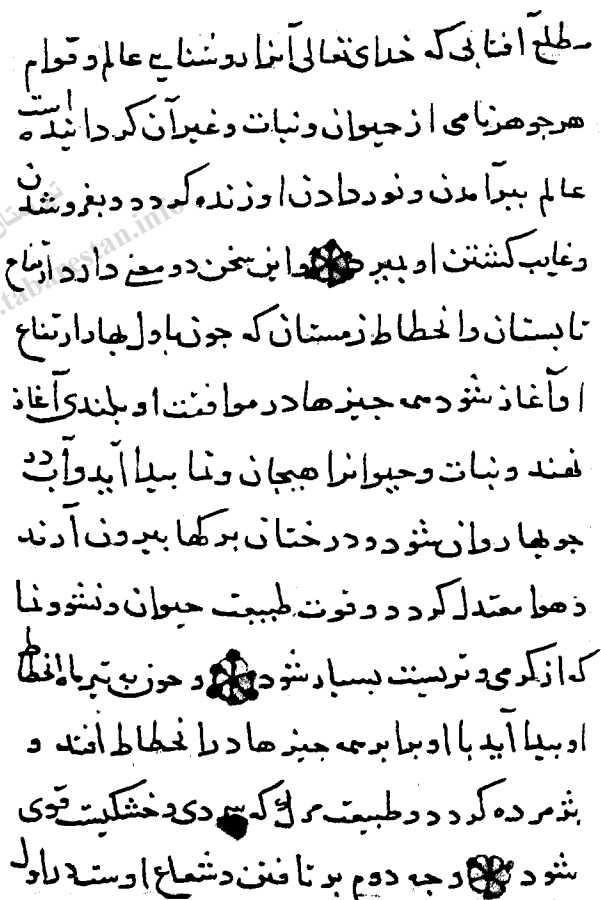 مطلع آفتابی که خدای تعالی آنرا روشنایی عالم و قوام
هر جوهر نامی از حیوان و نبات و غیر آن کردانیده است
عالم ببرآمدن و نور دادن او زنده کردد و بفروشدن
و غایب کشتن او بمیرد و این سخن دو معنی دارد ارتفاع
تابستان و انحطاط زمستان که جون باول بهار ارتفاع
او آغاز شود همه جیزها در موافقت او بلندی آغاز
نهند و نبات و حیوانرا هیجان و نما بیدا آید و آب در
جویها روان شود و درختان برکها بیرون آرند
هوا معتدل کردد و قوت طبیعت حیوان و نشو و نما
که از کرمی و تریست بسیار شود و جون به تیرماه انحطاط
او بیدا آید با او برابر همه جیزها در انحطاط افتد و
بژمرده کردد و طبیعت مرک که سردی و خشکیست قوی
شود وجه دوم بر تافتن شعاع اوست در اول